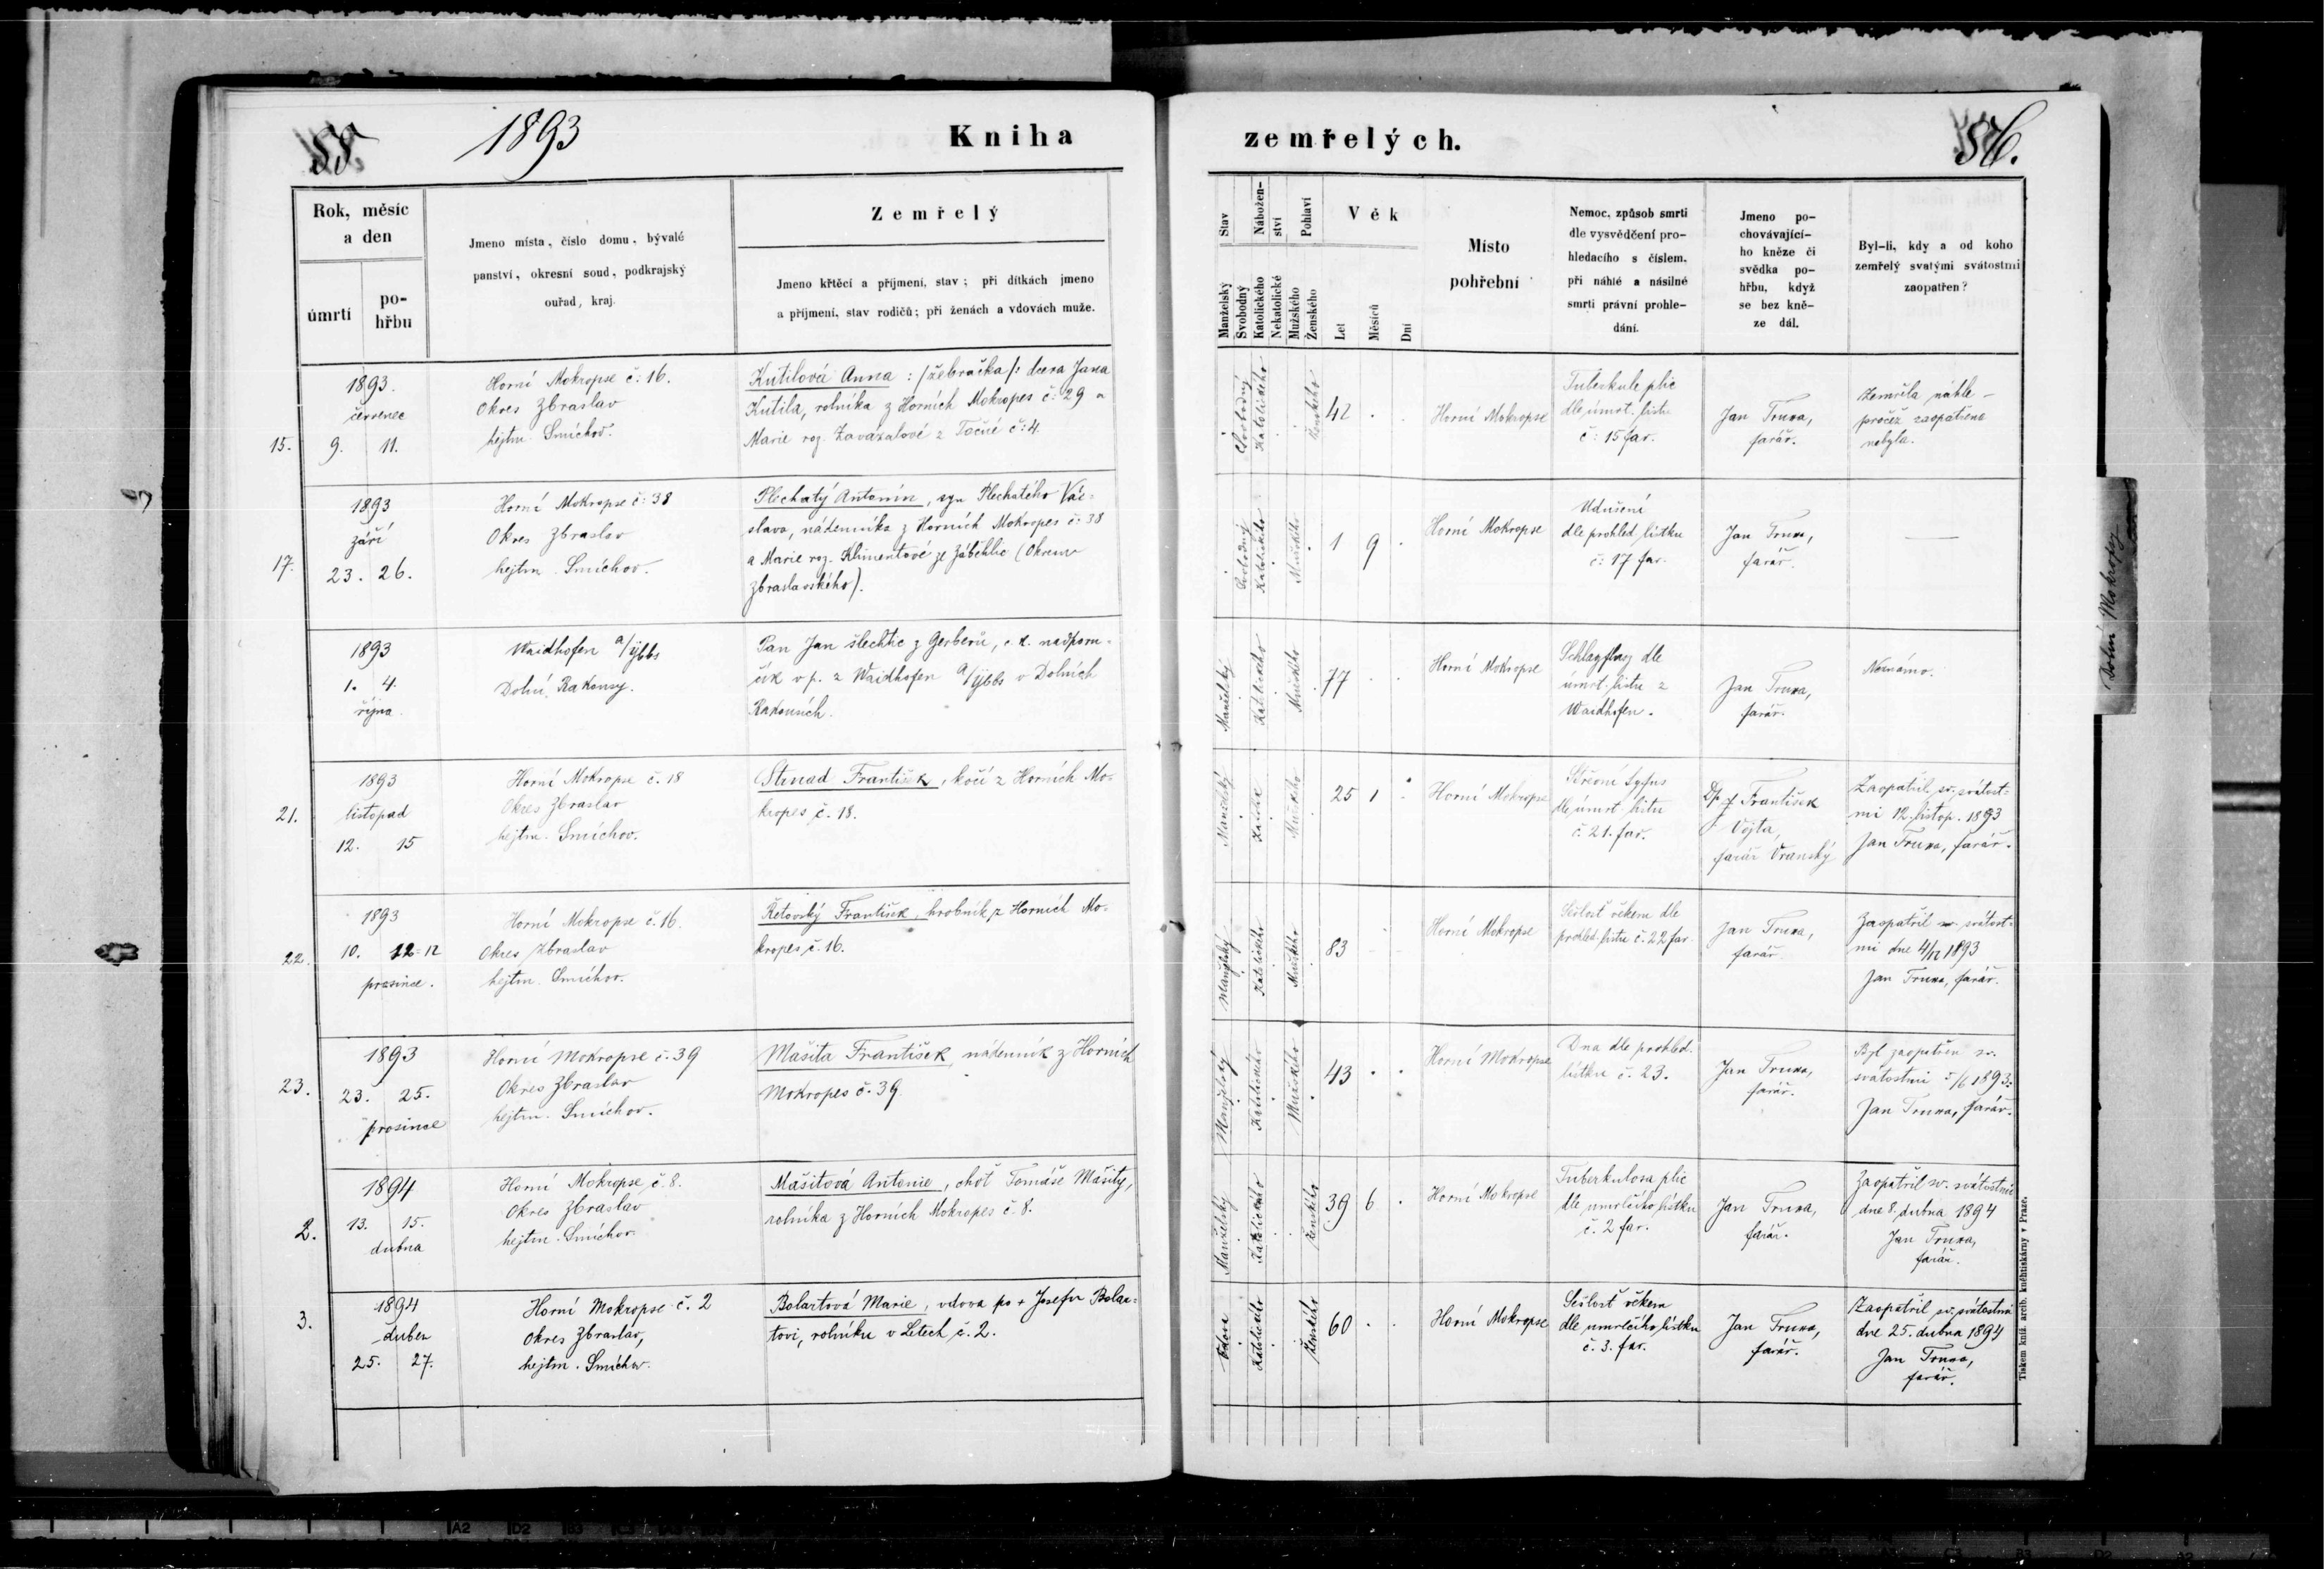 1893
Kniha
zemřelých.
56.
Rok, měsíc
a den
úmrtí
po-
hřbu
Jmeno místa, číslo domu, bývalé
panství, okresní soud, podkrajský
ouřad, kraj.
Zemřelý
Jmeno křtěcí a příjmení, stav; při dítkách jmeno
a příjmení, stav rodičů; při ženách a vdovách muže.
Stav
Manželský
Svobodný
Nábožen-
ství
Katolického
Nekatolické
Pohlaví
Mužského
Ženského
Věk
Let
Měsíců
Dní
Místo
pohřební
Nemoc, způsob smrti
dle vysvědčení pro-
hledacího s číslem,
při náhlé a násilné
smrti právní prohle-
dání.
Jmeno po-
chovávající-
ho kněze či
svědka po-
hřbu, když
se bez kně-
ze dál.
Byl-li, kdy a od koho
zemřelý svatými svátostmi
zaopatřen?
15.
1893.
červenec
9. 11.
Horní Mokropse č: 16.
Okres Zbraslav
hejtm. Smíchov.
Kutilová Anna : /žebračka/: dcera Jana
Kutila, rolníka z Horních Mokropes č: 29 a
Marie roz. Zavázalové z Točné č: 4.
Svobodný
Katolického
Ženského
42
Horní Mokropse
Tuberkule plic
dle úmrt. listu
č: 15 far.
Jan Truxa,
farář.
Zemřela náhle –
pročež zaopatřena
nebyla.
17.
1893
září
23. 26.
Horní Mokropse č: 38
Okres Zbraslav
hejtm. Smíchov.
Plechatý Antonín, syn Plechatého Vác-
slava, nádenníka z Horních Mokropes č: 38
a Marie roz. Klimentové ze Záběhlic (Okresu
Zbraslavského).
Svobodný
Katolického
Mužského
1 9
Horní Mokropse
Udušení
dle prohled. lístku
č: 17 far.
Jan Truxa,
farář.
1893
1. 4.
října
Waidhofen a/Ybbs
Dolní Rakousy.
Pan Jan šlechtic z Gerberů, c. k. nadporu-
čík v p. z Waidhofen a/Ybbs v Dolních
Rakousích.
Manželský
Katolického
Mužského
77
Horní Mokropse
Schlagfluss dle
úmrt. listu z
Waidhofen.
Jan Truxa,
farář.
Neznámo.
21.
1893
listopad
12. 15
Horní Mokropse č. 18
Okres Zbraslav
hejtm. Smíchov.
Strnad František, kočí z Horních Mo-
kropes č. 18.
Manželský
Mužského
25 1
Horní Mokropse
Střevní tyfus
dle úmrt. listu
č. 21. far.
František
Vojta,
farář Vranský
Zaopatřil sv. svátost-
mi 12. listop. 1893
Jan Truxa, farář.
22.
1893
10. 12
prosince.
Horní Mokropse č. 16.
Okres Zbraslav
hejtm. Smíchov.
Řetovský František, hrobník z Horních Mo-
kropes č. 16.
Manželský
Katolického
Mužského
83
Horní Mokropse
Sešlosť věkem dle
prohled. listu č. 22 far.
Jan Truxa,
farář
Zaopatřil sv. svátost-
mi dne 4/12 1893
Jan Truxa, farář.
23.
1893
23. 25.
prosince
Horní Mokropse č. 39
Okres Zbraslav
hejtm. Smíchov.
Mašita František, nádenník z Horních
Mokropes č. 39.
Manželský
Katolického
Mužského
43
Horní Mokropse
Dna dle prohled.
lístku č. 23.
Jan Truxa,
farář.
Byl zaopatřen sv.
svátostmi 1893.
Jan Truxa, farář.
2.
1894
13. 15.
dubna
Horní Mokropse č. 8.
Okres Zbraslav
hejtm. Smíchov.
Mašitová Antonie, choť Tomáše Mašity,
rolníka z Horních Mokropes č. 8.
Manželský
Katolického
Ženského
39 6
Horní Mokropse
Tuberkulosa plic
dle umrlčího lístku
č. 2 far.
Jan Truxa,
farář.
Zaopatřil sv. svátostmi
dne 8. dubna 1894
Jan Truxa,
farář.
3.
1894
duben
25. 27.
Horní Mokropse č. 2
Okres Zbraslav,
hejtm. Smíchov.
Bolartová Marie, vdova po + Josefu Bolar-
tovi, rolníku v Letech č. 2.
Vdova
Katolického
Ženského
60
Horní Mokropse
Sešlosť věkem
dle umrlčího lístku
č. 3. far.
Jan Truxa,
farář.
Zaopatřil sv. svátostmi
dne 25. dubna 1894
Jan Truxa,
farář.
Tiskem kníž. arcib. kněhtiskárny v Praze.
Dolní Mokropsy